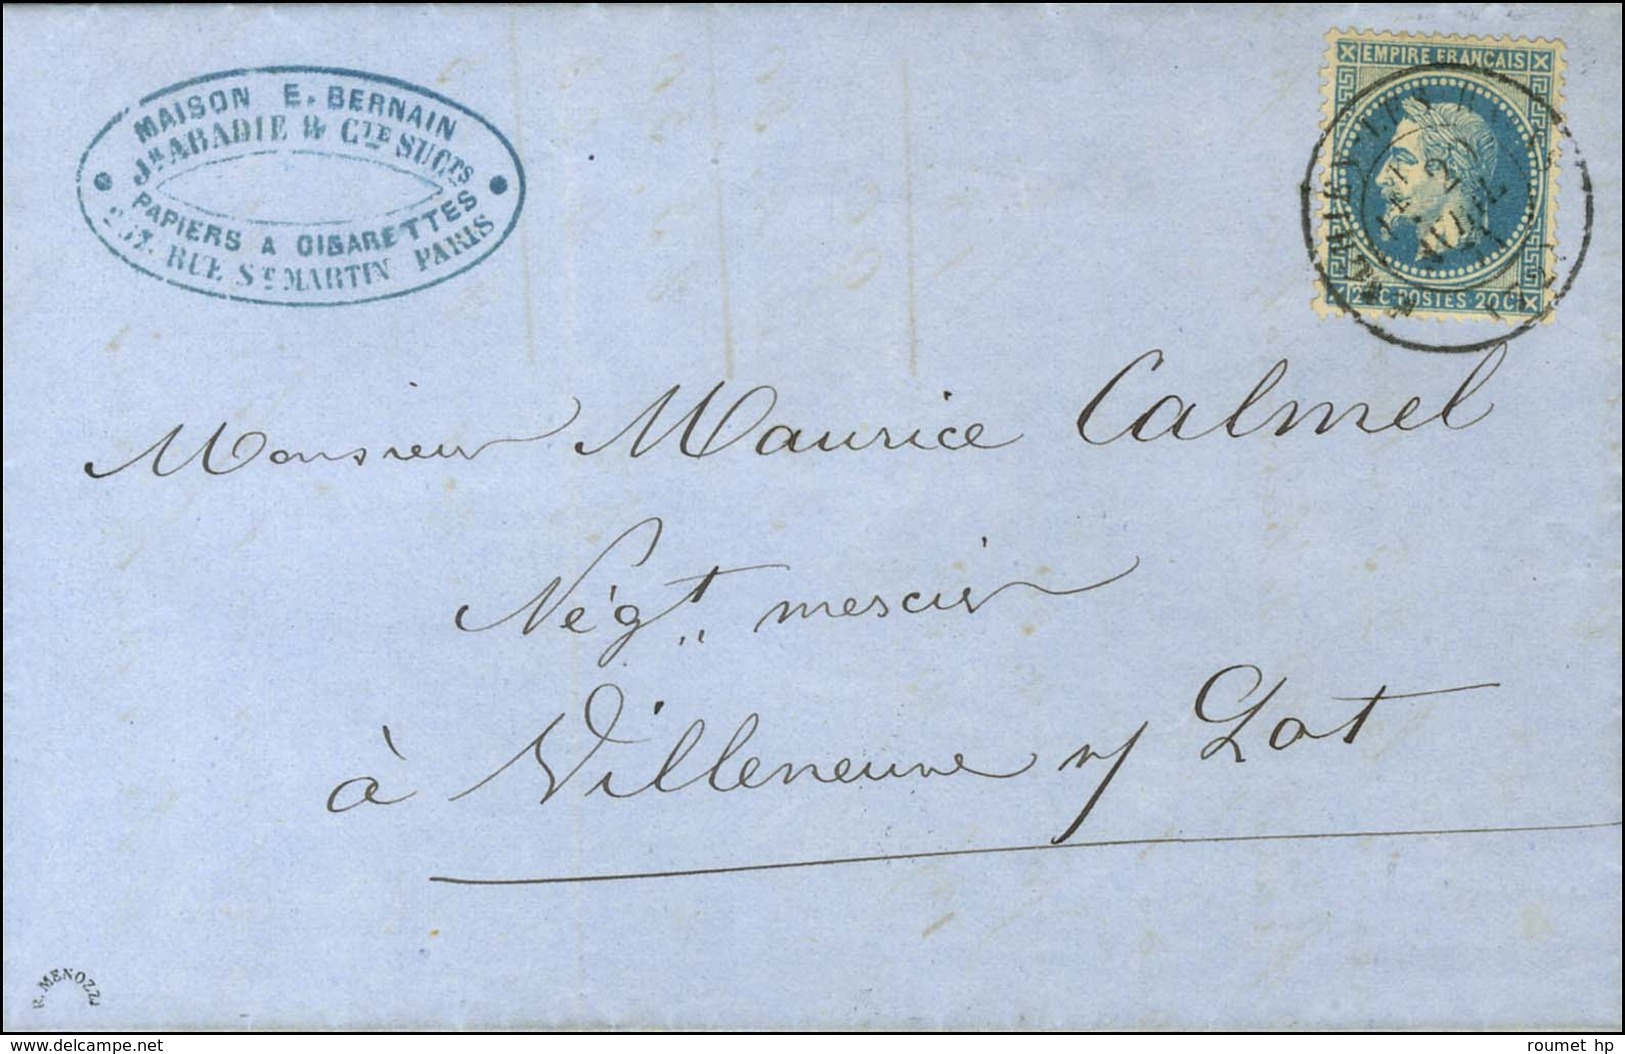 MAISON E. BERNAIN
Jh ABADIE & Cie SUCrs
PAPIERS A CIGARETTES
RUE St MARTIN PARIS
EMPIRE FRANÇAIS
20 C POSTES 20 C
20
AVRIL
71
Monsieur Maurice Calmel
Négt mercier
à Villeneuve s/ Lot
R. MENOZZI
www.delcampe.net
roumet hp